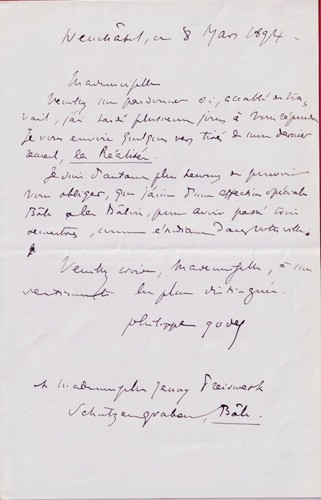 Neuchâtel, ce 8 Mars 1894.
Mademoiselle
Veuillez me pardonner si, accablé de tra-
vail, j'ai tardé plusieurs jours à vous répondre.
Je vous envoie quelques vers tirés de mon dernier
recueil, les Réalités.
Je suis d'autant plus heureux de pouvoir
vous obliger, que j'aime d'une affection spéciale
Bâle & les Bâlois, pour avoir passé trois
semestres, comme étudiant dans votre ville.
Veuillez croire, Mademoiselle, à mes
sentiments les plus distingués.
Philippe Godet
A Mademoiselle Jenny Preiswerk
Schützengraben, Bâle.